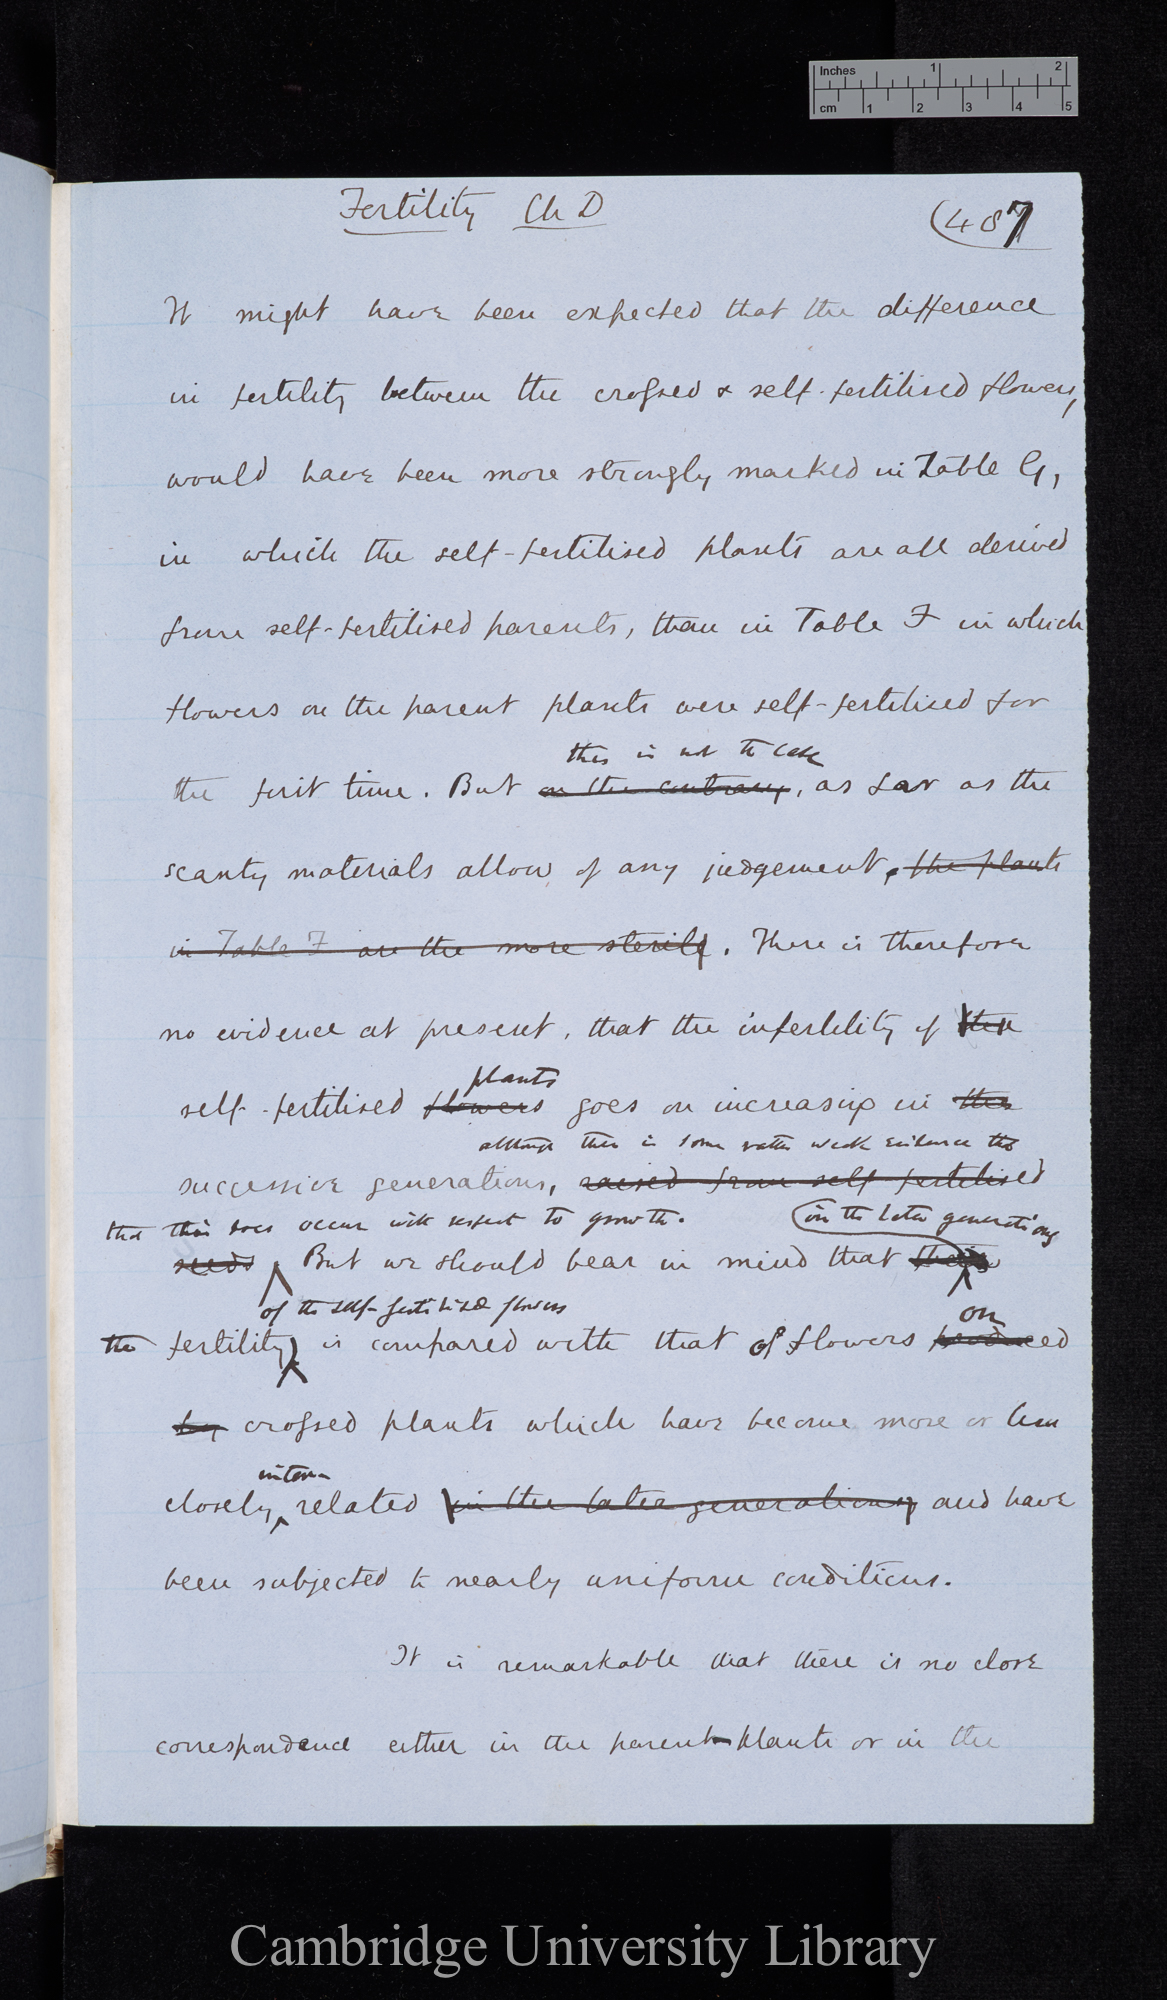 Inches 1 2
cm 1 2 3 4 5
Fertility Ch D (487
It might have been expected that the difference
in fertility between the crossed & self-fertilised flowers,
would have been more strongly marked in Table G,
in which the self-fertilised plants are all derived
from self-fertilised parents, than in Table F in which
flowers on the parent plants were self-fertilised for
this is not the case
the first time. But on the contrary, as far as the
scanty materials allow of any judgement, the plants
in Table F are the more sterile. There is therefore
no evidence at present, that the infertility of the
plants
self-fertilised flowers goes on increasing in the
although there is some rather weak evidence
successive generations, raised from self-fertilised
that this does occur with respect to growth. (in the later generations
seeds. But we should bear in mind that
of the self-fertilised flowers on
the fertility, is compared with that of flowers produced
by crossed plants which have become more or less
inter-
closely, related in the later generations, and have
been subjected to nearly uniform conditions.
It is remarkable that there is no close
correspondence either in the parent-plants or in the
Cambridge University Library